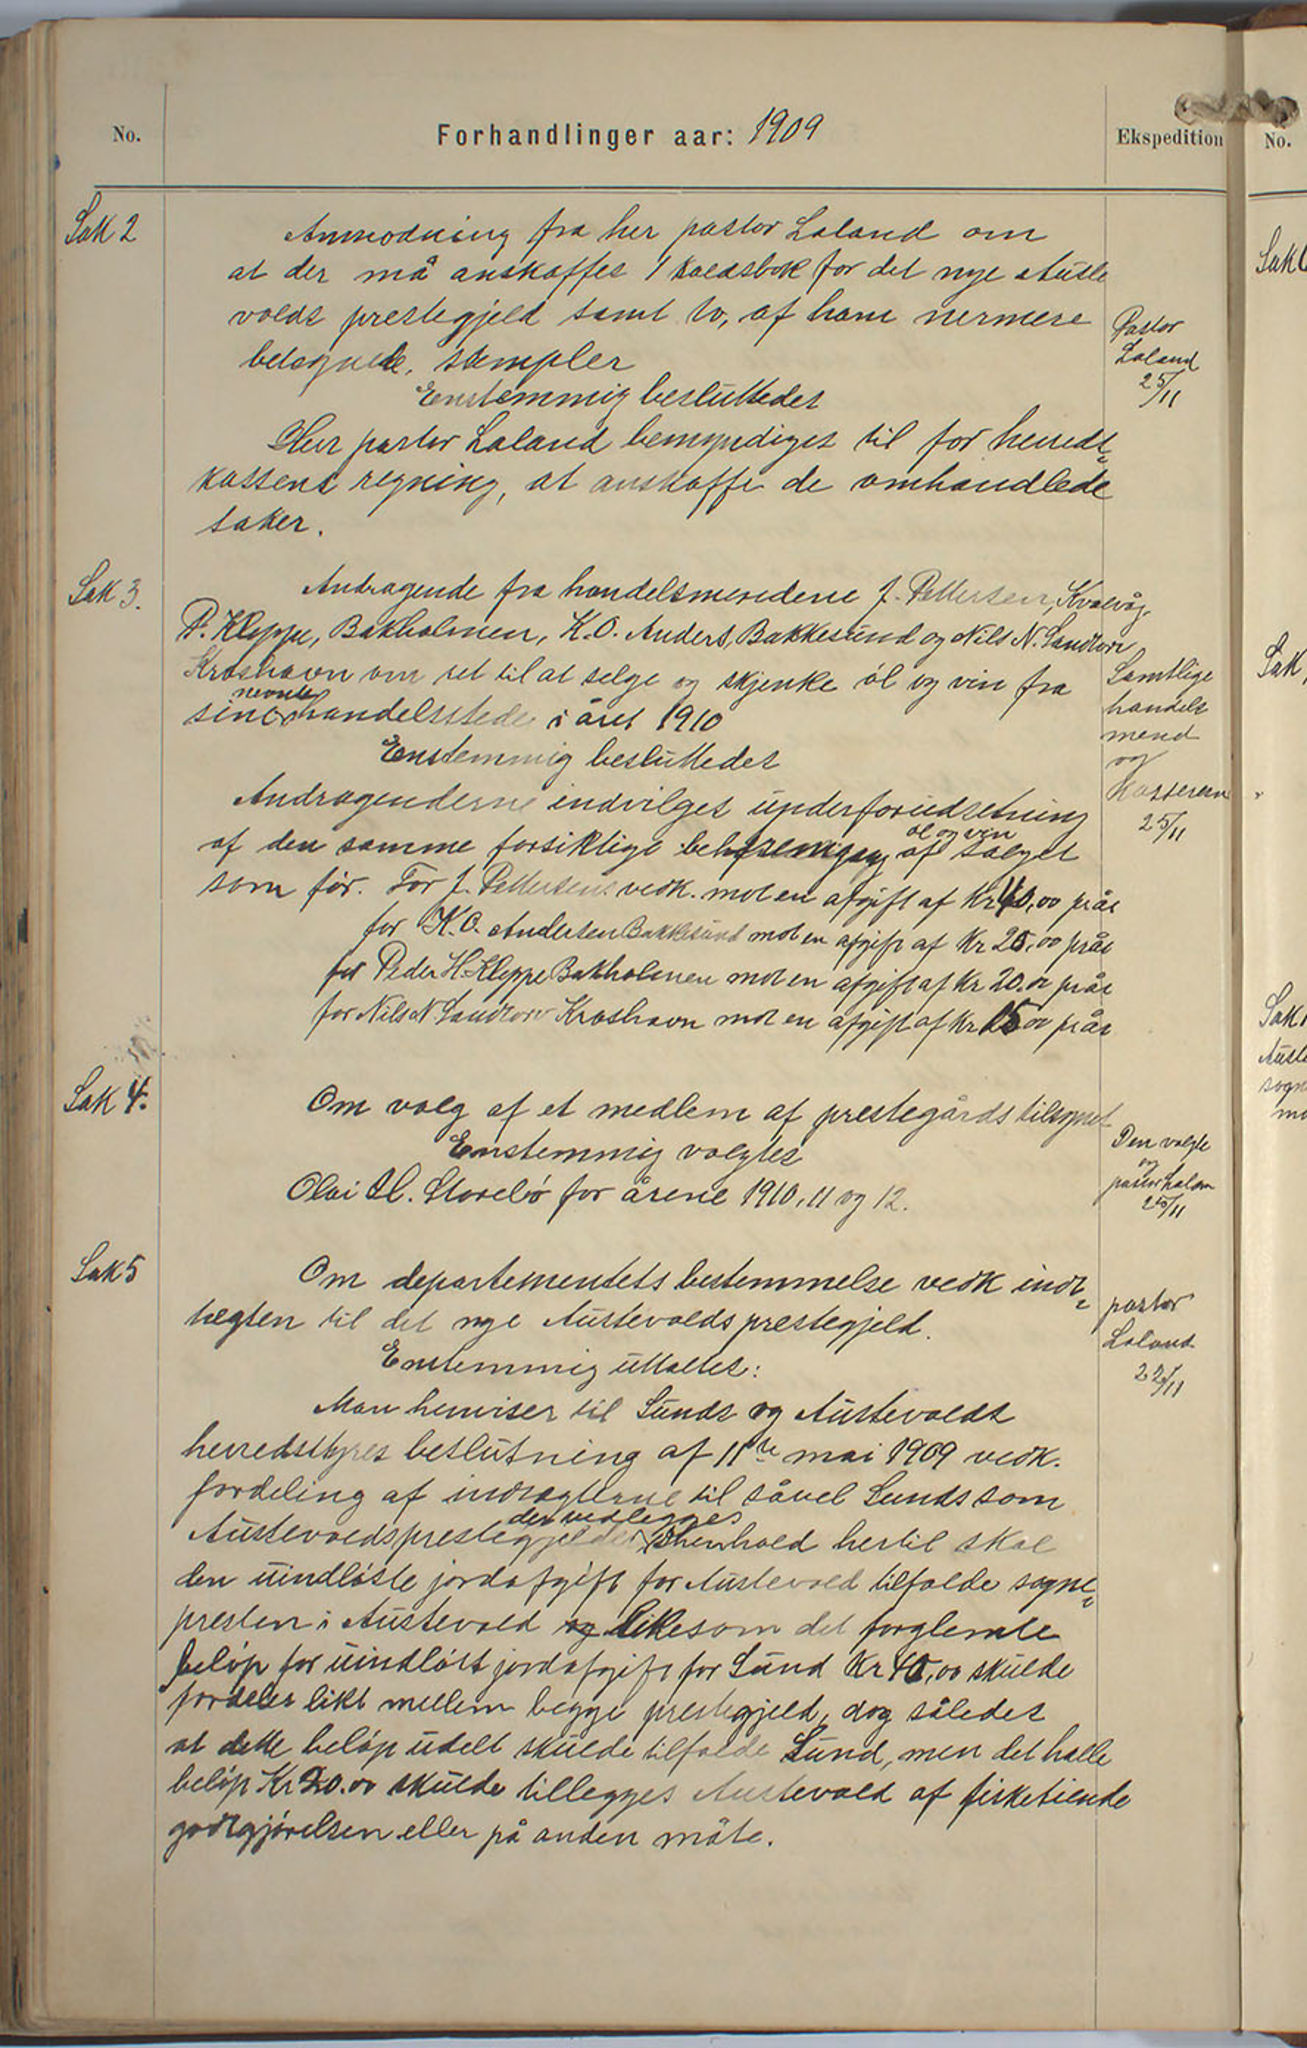 No.
Forhandlinger aar: 1909
Ekspedition
No.
Sak 2
Anmodning fra her pastor Laland om
at der må anskaffes 1 kaldsbok for det nye Auste
volds prestegjeld samt to, af ham nermere
betegnede, stempler
Enstemmig besluttedes
Herr pastor Laland bemyndiges til for herreds=
kassens regning, at anskaffe de omhandlede
saker.
Pastor
Laland
25/11
Sak 3.
Andragende fra handelsmendene J. Pettersen, Kvalvåg,
P. Kleppe, Bakholmen, K.O. Anders, Bakkesund og Nils N. Sandtorv
Kroshavn om ret til at selge og skjenke öl og vin fra
nevnte
sine handelsstede i året 1910
Enstemmig besluttedes
Andragenderne indvilges underforudsetning
öl og vin
af den samme forsiktige af salget
som för. For J. Pettersens vedk. mot en afgift af Kr 40,00 pr år
for K.O. Andersen Bakkesund mot en afgift af Kr 25,00 pr år
for Peder H. Kleppe Bakholmen mot en afgift af Kr 20.00 pr år
for Nils N. Sandtorv Kroshavn mot en afgift af Kr 15 00 pr år
Samtlige
handels
mend
og
Kasseren
25/11
Sak 4.
Om valg af et medlem af prestegårdstilsynet
Enstemmig valgtes
Olai H. Storebö for årene 1910, 11 og 12.
Den valgte
og
pastor Lalan
25/11
Sak 5
Om departementets bestemmelse vedk indt=
tegten til det nye Austevolds prestegjeld.
Enstemmig uttaltes:
Man henviser til Sunds og Austevolds
herredstyres beslutning af 11te mai 1909 vedk.
fordeling af indtegterne til såvel Sunds som
der vedlegges
Austevolds prestegjelder I henhold hertil skal
den uindlöste jordafgift for Austevold tilfalde sogne=
presten i Austevold og likesom det forglemte
belöp for uindlöst jordafgift for Sund Kr 40,00 skulde
fordeles likt mellem begge prestegjeld, dog således
at dette belöp udelt skulde tilfalde Sund, men det halle
belöp Kr 20.00 skulde tillegges Austevold af fisketiende
godtgjörelsen eller på anden måte.
pastor
Laland
22/11
Sak
Sak
Sak
Auste
sogn